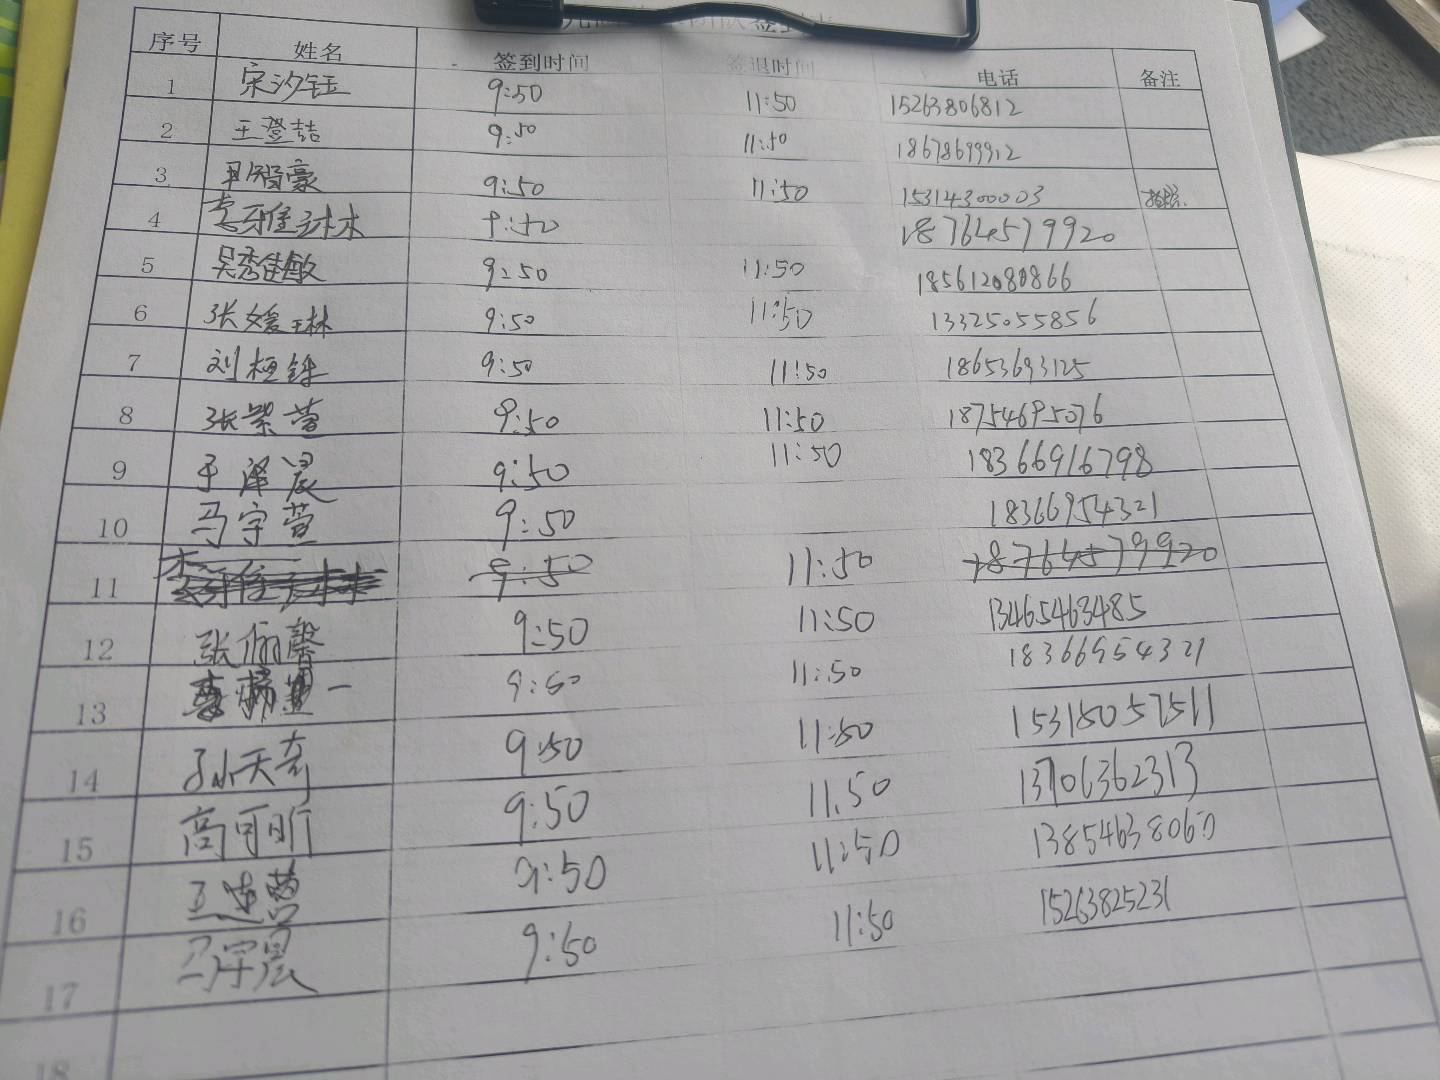 序号 姓名 签到时间 签退时间 电话 备注
1 宋汐钰 9:50 11:50 15263806812
2 王登喆 9:50 11:50 18678699912
3 智豪 9:50 11:50 15314300003
4 李雅 9:50 18764579920
5 吴秀敏 9:50 11:50 185612080866
6 张媛琳 9:50 11:50 13325055856
7 刘桓铄 9:50 11:50 18653693125
8 张紫萱 9:50 11:50 18754695076
9 于泽晨 9:50 11:50 18366916798
10 马宇萱 9:50 18366954321
11 9:50 11:50 18764579920
12 张俪馨 9:50 11:50 13465463485
13 一 9:50 11:50 18366954321
14 孙天奇 9:50 11:50 15315057511
15 高可昕 9:50 11.50 13706362313
16 王 9:50 11:50 13854638060
17 马宇晨 9:50 11:50 15263825231
18